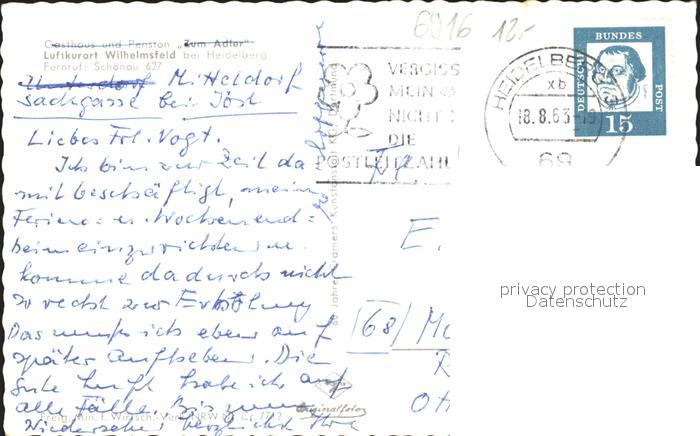 6916 12.-
Gasthaus und Pension „Zum Adler"
Luftkurort Wilhelmsfeld bei Heidelberg
Fernruf: Schönau 627
Unterdorf Mitteldorf
Sackgasse bei Jöst
Liebes Frl. Vogt.
Ich bin zur Zeit da-
mit beschäftigt, mein
Ferien- u. Wochenend=
heim einzurichten u.
komme dadurch nicht
so recht zur Erholung
Das muss ich eben auf
später aufheben. Die
Gute Luft habe ich auf
alle Fälle. Bis zum
Wiedersehn herzlichst Ihre
Freig. Min. f. Wirtsch. Verk. NRW
Originalfotos
VERGISS
MEIN
NICHT
DIE
POSTLEITZAHL
HEIDELBERG 3
xb
18.8.63-19
69
DEUTSCHE BUNDES POST
15
E.
(68) M
privacy protection
Datenschutz